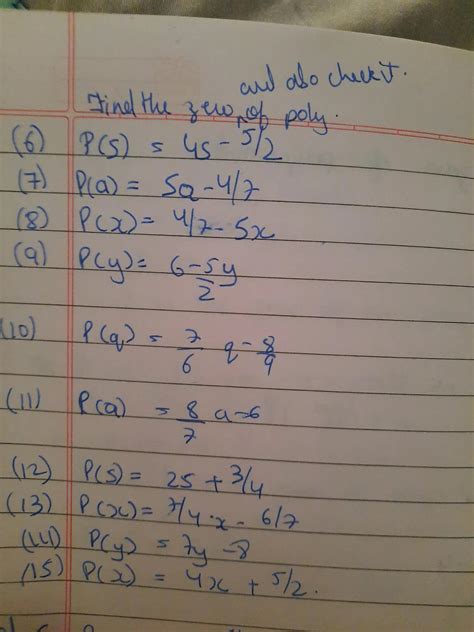 and also check it.
Find the zero of poly.
(6) P(s) = 4s - 5/2
(7) P(a) = 5a - 4/7
(8) P(x) = 4/7 - 5x
(9) P(y) = 6 - 5y/2
(10) P(q) = 7/6 q - 8/9
(11) P(a) = 8/7 a - 6
(12) P(s) = 2s + 3/4
(13) P(x) = 7/4 · x - 6/7
(14) P(y) = 7y - 8
(15) P(x) = 4x + 5/2.